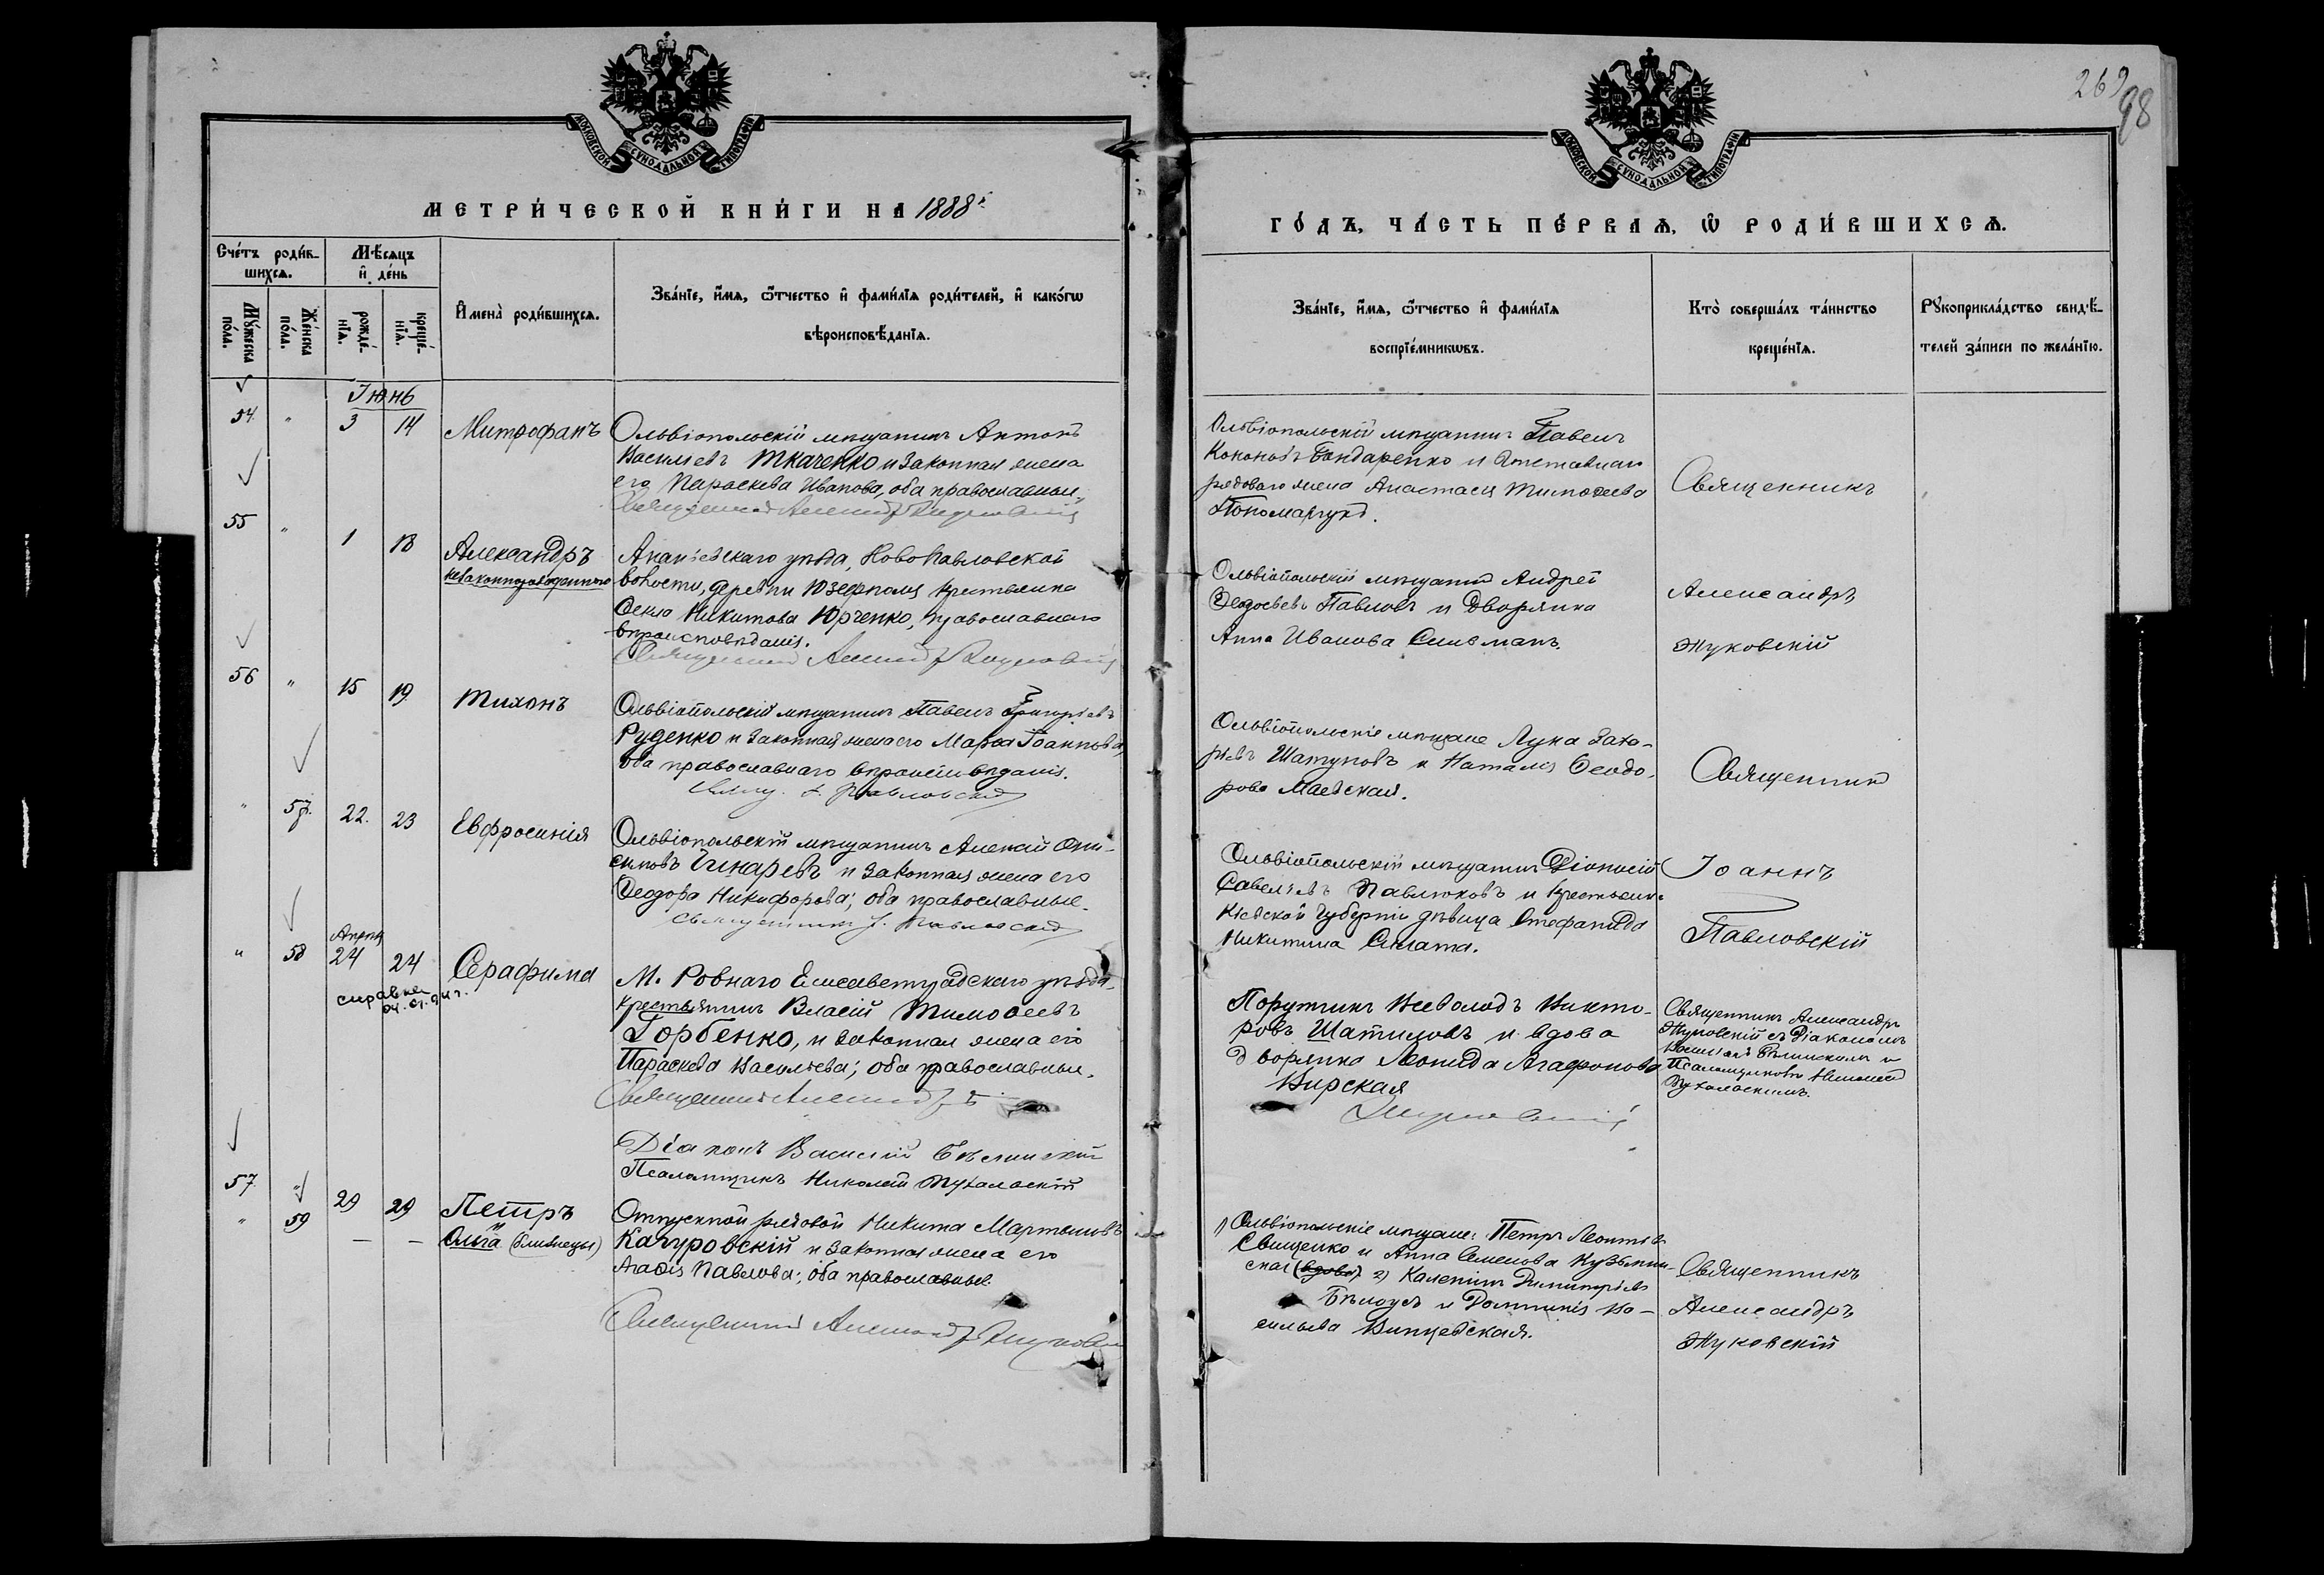 269
98
МОСКОВСКОЙ СУНОДАЛЬНОЙ ТИПОГРАФІИ
МОСКОВСКОЙ СУНОДАЛЬНОЙ ТИПОГРАФІИ
МЕТРИ́ЧЕСКОЙ КНИ́ГИ НА 1888й
ГО́ДЪ, ЧА́СТЬ ПЕ́РВАѦ, Ѿ РОДИ́ВШИХСѦ.
Сче́тъ роди́в-
шихсѧ.
Мѣ́сѧцъ
и҆ де́нь
Мꙋ́жеска по́ла.
Же́нска по́ла.
рожде́-нїѧ.
креще́-нїѧ.
И҆мена̀ роди́вшихсѧ.
Зва́нїе, и҆́мѧ, ѻ҆́тчество и҆ фами́лїѧ роди́телей, и҆ како́гѡ
вѣроисповѣ́данїѧ.
Зва́нїе, и҆́мѧ, ѻ҆́тчество и҆ фами́лїѧ
воспрїе́мникѡвъ.
Кто̀ соверша́лъ та́инство
креще́нїѧ.
Рꙋкоприкла́дство свидѣ́-
телей за́писи по жела́нїю.
Іюнь
54. " 3 14 Митрофанъ
Ольвіопольскій мѣщанинъ Антонъ
Васильевъ Ткаченко и законная жена
его Параскева Иванова, оба православные.
Священникъ Александръ Жуковскій
Ольвіопольскій мѣщанинъ Павелъ
Кононовъ Бондаренко и отставнаго
рядоваго жена Анастасія Тимоѳеева
Пономарчукъ.
Священникъ
55 " 1 18 Александръ
незаконнорожденного
Ананьевскаго уѣзда, Новопавловской
волости, деревни Юзефполя крестьянка
Ѳекла Никитова Юрченко, православнаго
вѣроисповѣданія.
Священникъ Александръ Жуковскій
Ольвіопольскій мѣщанинъ Андрей
Ѳеодосьевъ Павловъ и Дворянка
Анна Иванова
Александръ
Жуковскій
56 " 15 19. Тихонъ
Ольвіопольскій мѣщанинъ Павелъ Григорьевъ
Руденко и законная жена его Марѳа Іоаннова,
оба православнаго вѣроисповѣданія.
Свящ. І. Павловскій
Ольвіопольскіе мѣщане Лука Заха-
рьевъ Шатуновъ и Наталія Ѳеодо-
рова Маевская.
Священникъ
" 57. 22. 23 Евфросинія
Ольвіопольскій мѣщанинъ Алексій Они-
симовъ Чинаревъ и законная жена его
Ѳеодора Никифорова; оба православные.
Священникъ І. Павловскій
Ольвіопольскій мѣщанинъ Діонисій
Савельевъ Павлюковъ и крестьянка
Кіевской губерніи дѣвица Стефанида
Никитина
Іоаннъ
Павловскій
Апрѣль
" 58 24 24 Серафима
справка
04.01.94 г.
М. Ровнаго Елисаветградскаго уѣзда
крестьянинъ Власій Тимоѳеевъ
Горбенко, и законная жена его
Параскева Васильева; оба православные.
Священникъ Александръ
Порутчикъ Всеволодъ Викто-
ровъ Шатиловъ и вдова
дворянка Леонида Агафонова
Вирская
Жуковскій
Священникъ Александръ
Жуковскій съ Діакономъ
Василіемъ Бѣлинскимъ и
Псаломщикомъ Николаемъ
Діаконъ Василій Бѣлинскій
Псаломщикъ Николай
57 " 29 29 Петръ
" 59 — — и Ольга (близнецы)
Отпускной рядовой Никита Мартыновъ
Качуровскій и законная жена его
Агафія Павлова; оба православные.
Священникъ Александръ Жуковскій
1) Ольвіопольскіе мѣщане: Петръ Леонтьевъ
Свищенко и Анна Семенова Кузьмин-
ская (вдова) 2) Каленикъ Димитріевъ
Бѣлоусъ и Домникія Ва-
сильева Винцевская.
Священникъ
Александръ
Жуковскій